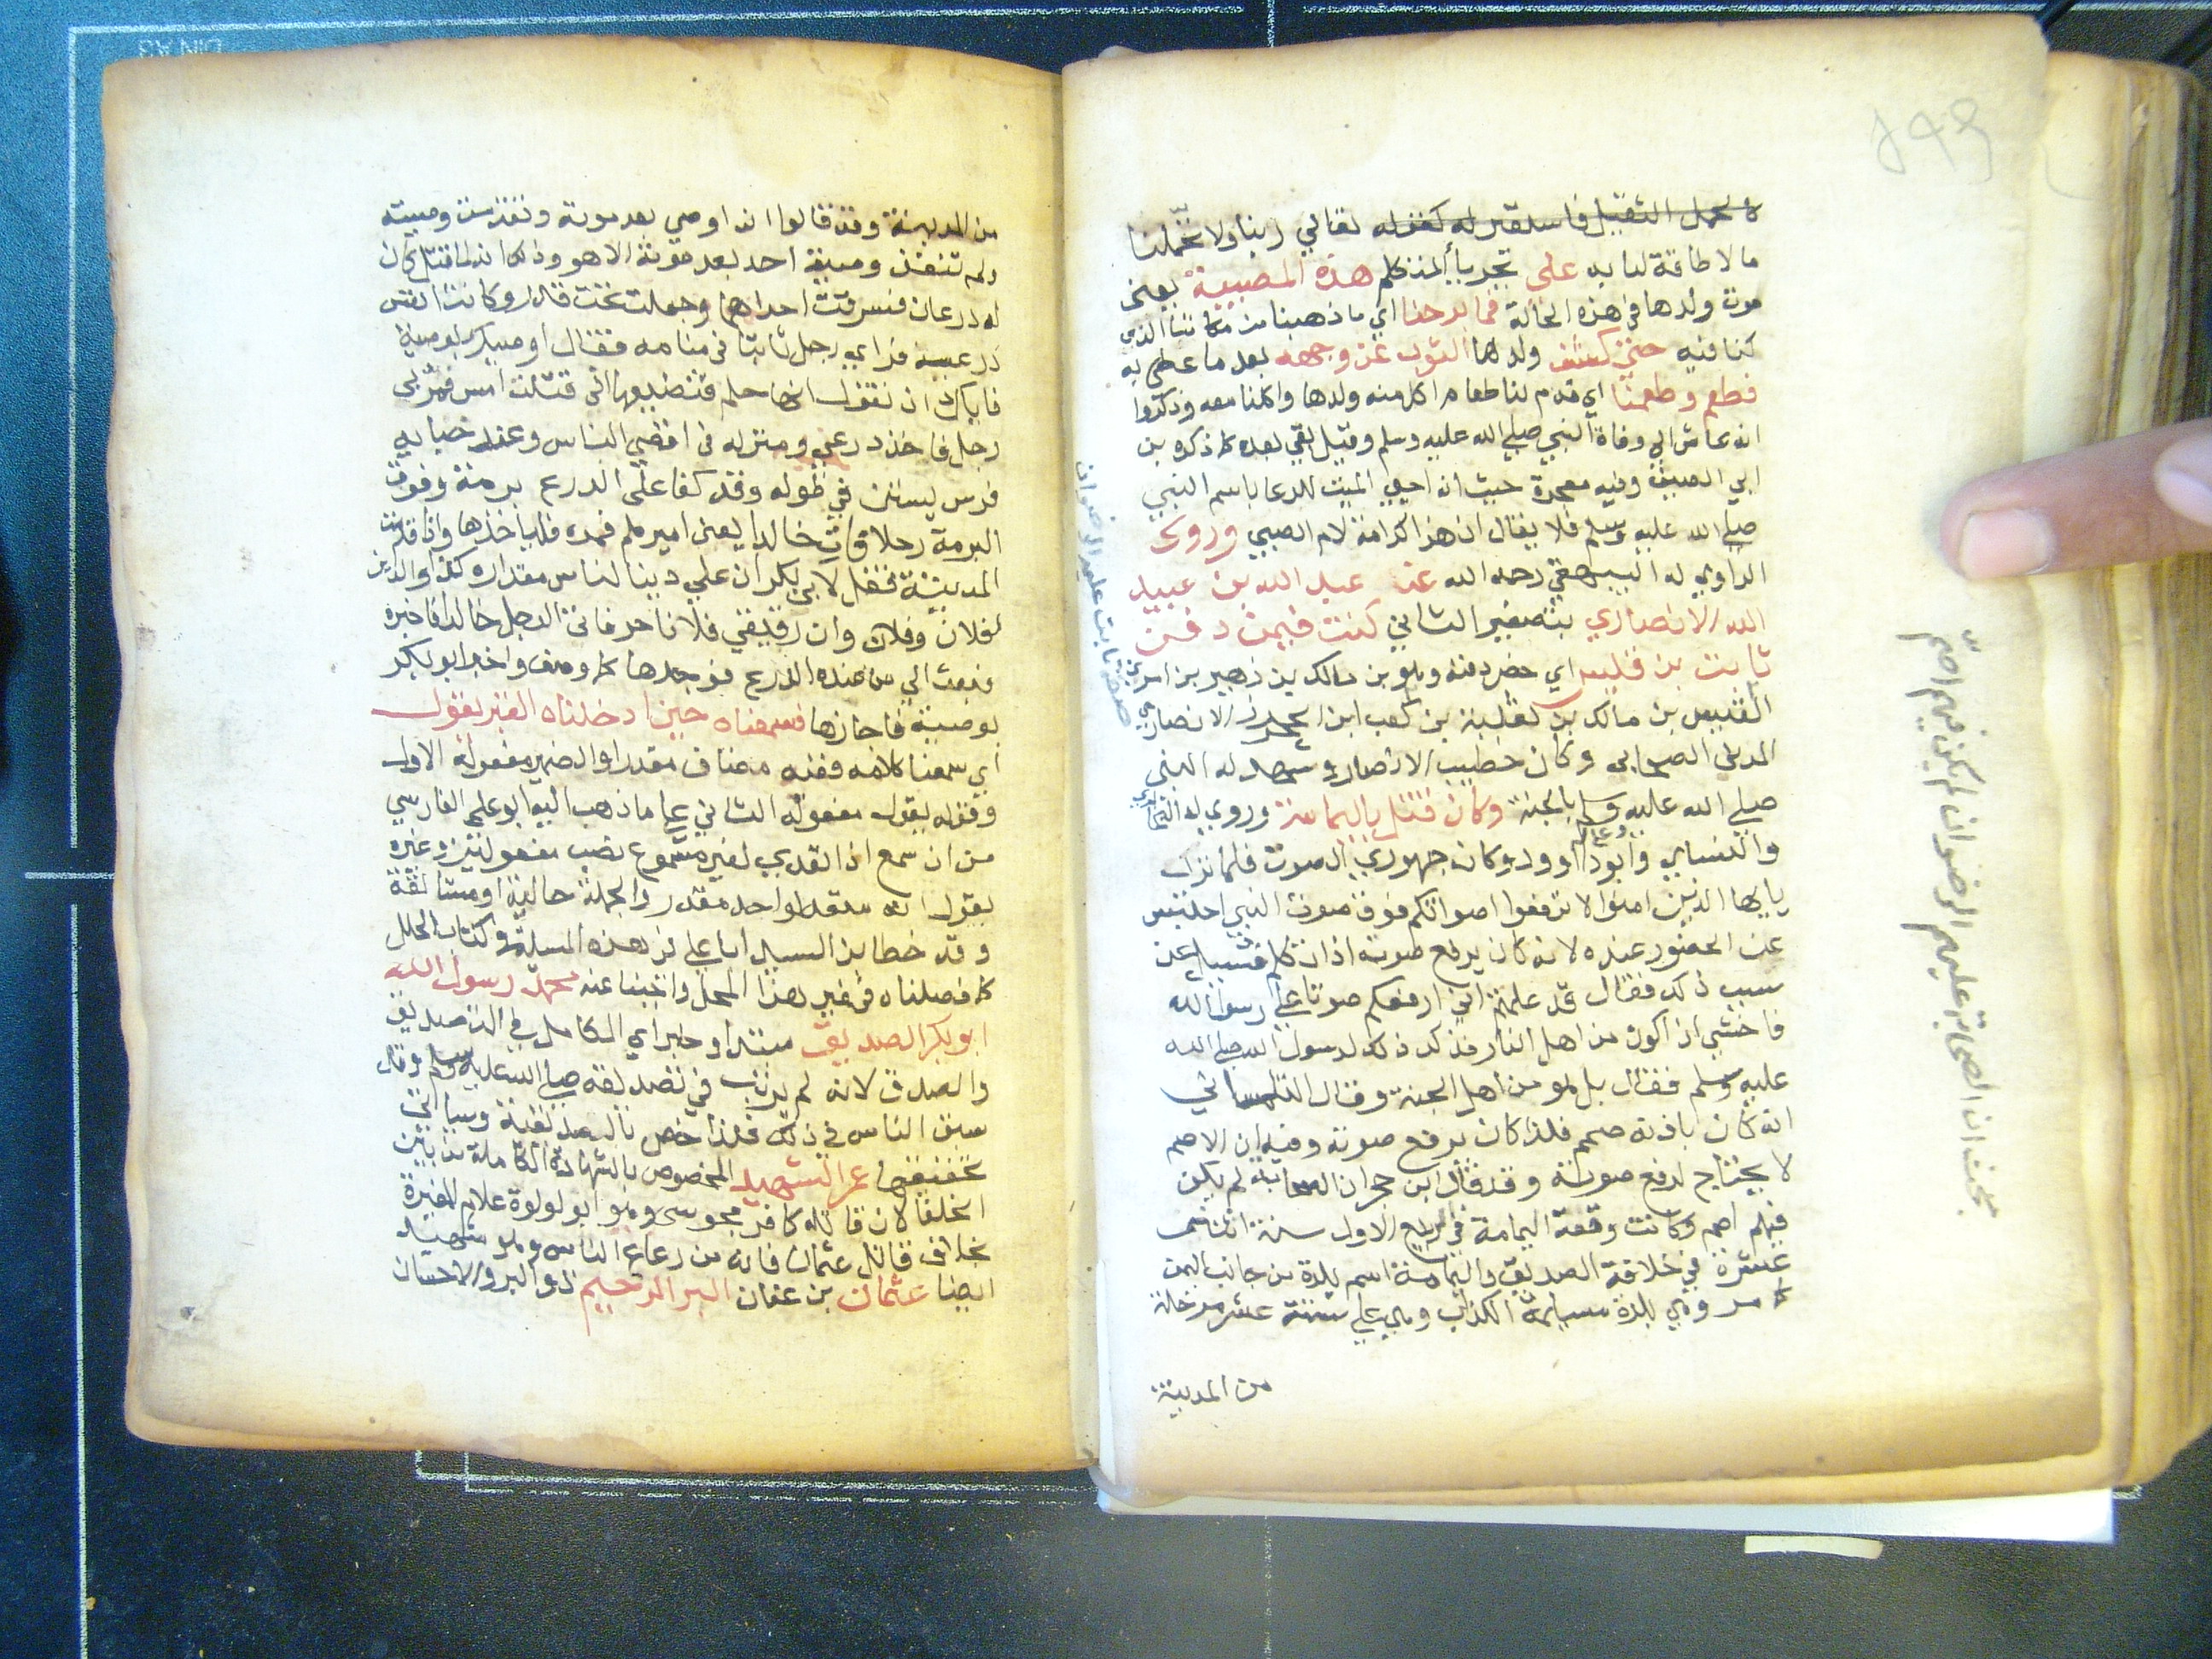 كالحمل الثقيل فاستعير له كقوله تعالي ربنا ولا تحملنا
ما لا طاقة لنا به على تجر يا المتكلم هذه المصيبة يعني
موت ولدها في هذه الحالة فما برحنا اي ما ذهبنا من مكاننا الذي
كنا فيه حتي كشف ولدها الثوب عن وجهه بعد ما غطي به
فطعم وطعمنا اي قدم لنا طعام اكل منه ولدها واكلنا معه وذكروا
انه عاش الي وفاة النبي صلي الله عليه وسلم وقيل بقي بعده كما ذكره بن
ابي الصيف وفيه معجزة حيث ان احيي الميت للدعا باسم النبي
صلي الله عليه وسلم فلا يقال ان هذا كرامة لام الصبي وروى
الراوي له البيهقي رحمه الله عن عبد الله بن عبيد
الله الانصاري بتصغير الثاني كنت فيمن دفن
ثابت بن قيس اي حضر دفنه وهو بن مالك بن زهير بن امري
القيس بن مالك بن ثعلبة بن كعب ابن الخزرج الانصاري
المدني الصحابي وكان خطيب الانصار وشهد له النبي
صلي الله عليه وسلم بالجنة وكان قتل باليمامة وروي له البخاري
والنساي وابو داوود وكان جهوري الصوت فلما نزلت
يايها الذين امنوا لا ترفعوا اصواتكم فوق صوت النبي احتبس
عن الحضور عنده لانه كان يرفع صوته اذا تكلم فسيل عن
سبب ذلك فقال قد علمتم اني ارفعكم صوتا علي رسول الله
فاخشي ان اكون من اهل النار فذكر ذلك لرسول الله صلي الله
عليه وسلم فقال بل هو من اهل الجنة وقال التلمساني
انه كان باذنه صمم فلذا كان يرفع صوته وفيه ان الاصم
لا يحتاج لرفع صوته وقد قال ابن حجر ان الصحابة لم يكن
فيهم اصم وكانت وقعة اليمامة في ربيع الاول سنة اثنتي
عشرة في خلافة الصديق واليمامة اسم بلدة من جانب اليمن
وهي بلدة مسيلمة الكذاب وهي علي ستة عشر مرحلة
من المدينة
بحث ان الصحابة عليهم الرضوان لم يكن فيهم اصم
ثابت عليه الرضوان
من المدينة وقد قالوا انه اوصي بعد موته ونفذت وصيته
ولم تنفذ وصية احد بعد موته الا هو وذلك انه لما قتل كان
له درعان فسرقت احداهما وجعلت تحت قدر وكانت انفس
درعيه فراي رجل ثابتا في منامه فقال اوصيك بوصية
فاياك ان تقول انها حلم فتضيعها اني قتلت امس فمر بي
رجل فاخذ درعي ومنزله في اقصي الناس وعند خبايه
فرس يستن في طوله وقد كفا علي الدرع برمة وفوق
البرمة رحلا فات خالدا يعني اميرهم فمره فليأخذها واذا قدمت
المدينة فقل لابي بكر ان علي دينا لناس مقداره كذا والدين
لفلان وفلان وان رقيقي فلانا حر فاتي الرجل خالدا فاخبره
فبعث الي من عنده الدرع فوجدها كما وصف واخبر ابو بكر
بوصيته فاجازها فسمعناه حين ادخلناه القبر يقول
اي سمعنا كلامه ففيه مضاف مقدر او الضمير مفعوله الاول
وقوله يقول مفعوله الثاني علي ما ذهب اليه ابو علي الفارسي
من ان سمع اذا تعدي لغير مسموع نصب مفعولين وغيره
يقول انه متعد لواحد مقدر والجملة حالية او مستانفة
وقد خطا بن السيد ابا علي في هذه المسيلة في كتاب الحلل
كما فصلناه في غير هذا المحل واجبنا عنه محمد رسول الله
ابو بكر الصديق مبتدا وخبر اي الكامل في التصديق
والصدق لانه لم يرتب في تصديقه صلي الله عليه وسلم وقد
سبق الناس في ذلك فلذا خص بالصديقية وسياتي
تحقيقها عمر الشهيد المخصوص بالشهادة الكاملة من بين
الخلفا لان قاتله كافر مجوسي وهو ابو لولوة غلام المغيرة
بخلاف قاتل عثمان فانه من رعاع الناس وهو شهيد
ايضا عثمان بن عفان البر الرحيم ذو البر والاحسان